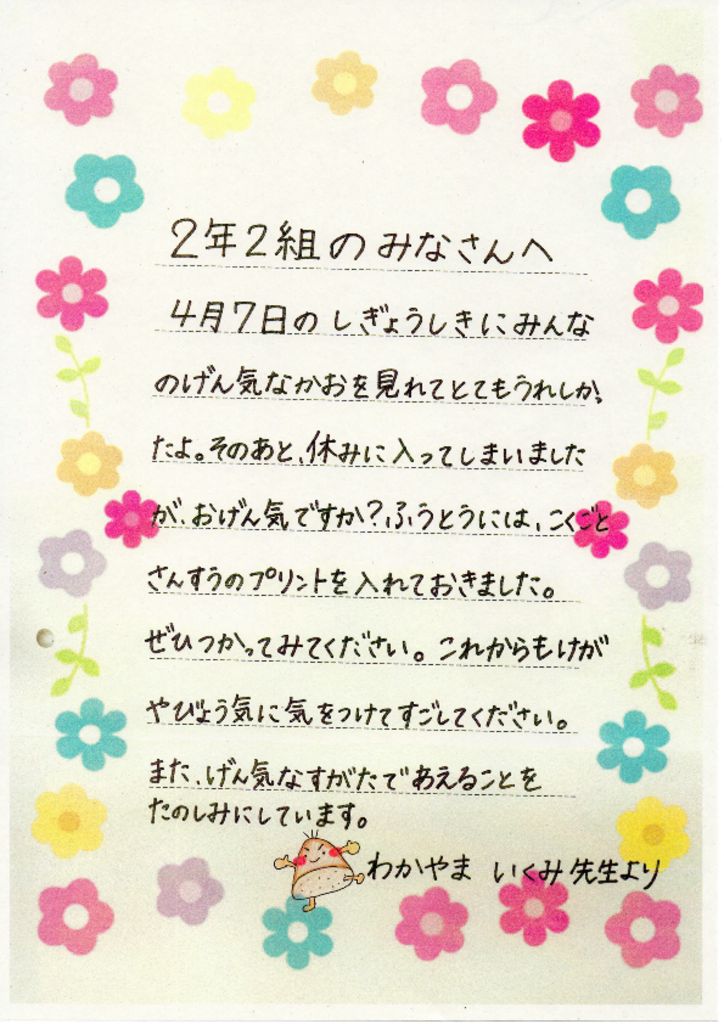 2年2組のみなさんへ
4月7日のしぎょうしきにみんな
のげん気なかおを見れてとてもうれしかっ
たよ。そのあと、休みに入ってしまいました
が、おげん気ですか？ふうとうには、こくごと
さんすうのプリントを入れておきました。
ぜひつかってみてください。これからもけが
やびょう気に気をつけてすごしてください。
また、げん気なすがたであえることを
たのしみにしています。
わかやま いくみ先生より